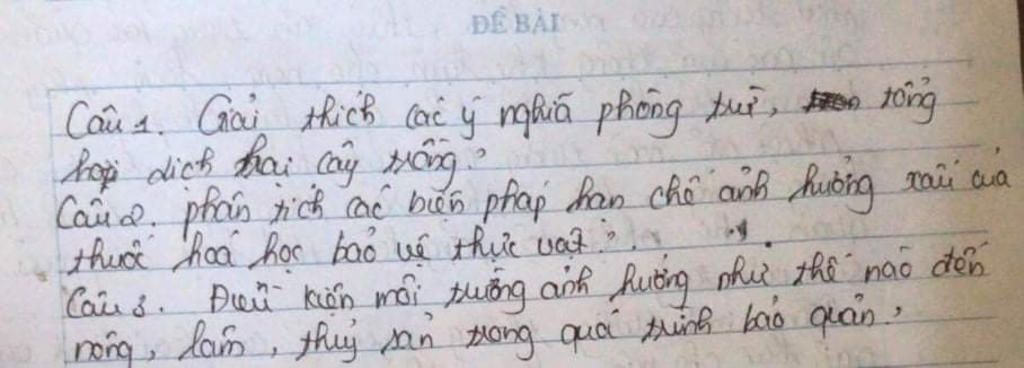 ĐỀ BÀI
Câu 1. Giải thích các ý nghĩa phòng trừ, tổng
hợp dịch hại cây trồng?
Câu 2. phân tích các biện pháp hạn chế ảnh hưởng xấu của
thuốc hoá học bảo vệ thực vật?.
Câu 3. Điều kiện môi trường ảnh hưởng như thế nào đến
nông, lâm, thuỷ sản trong quá trình bảo quản?